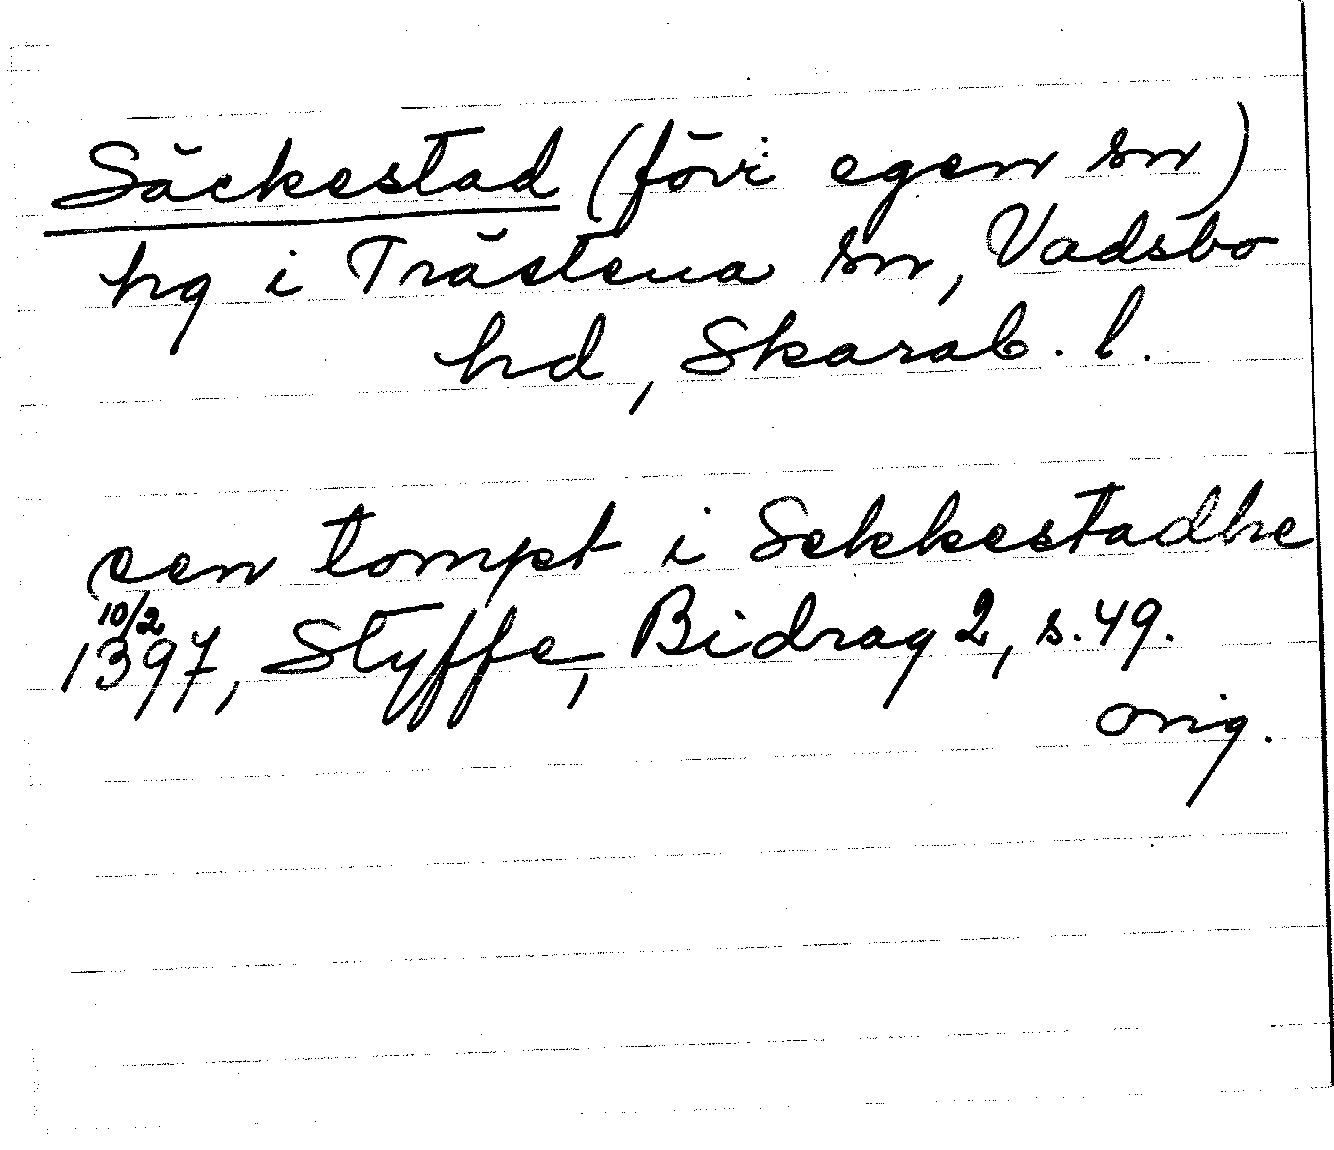 Säckestad (förr: egen sn)
hg i Trästena sn, Vadsbo
hd, Skarab. l.
een tompt i Sekkestadhe
10/2
1397, Styffe, Bidrag 2, s. 49.
orig.